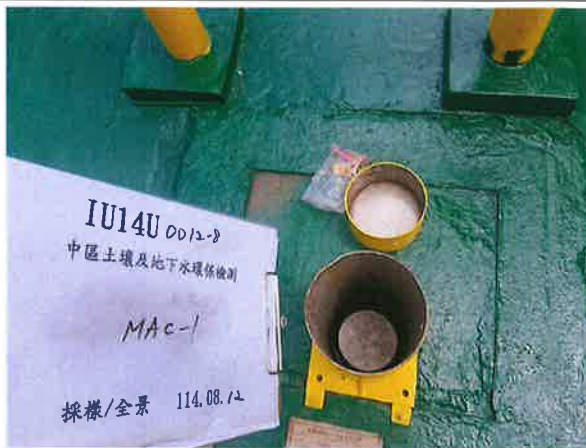 IU14U 0012-8
中區土壤及地下水環保檢測
MAC-1
採樣/全景 114.08.12